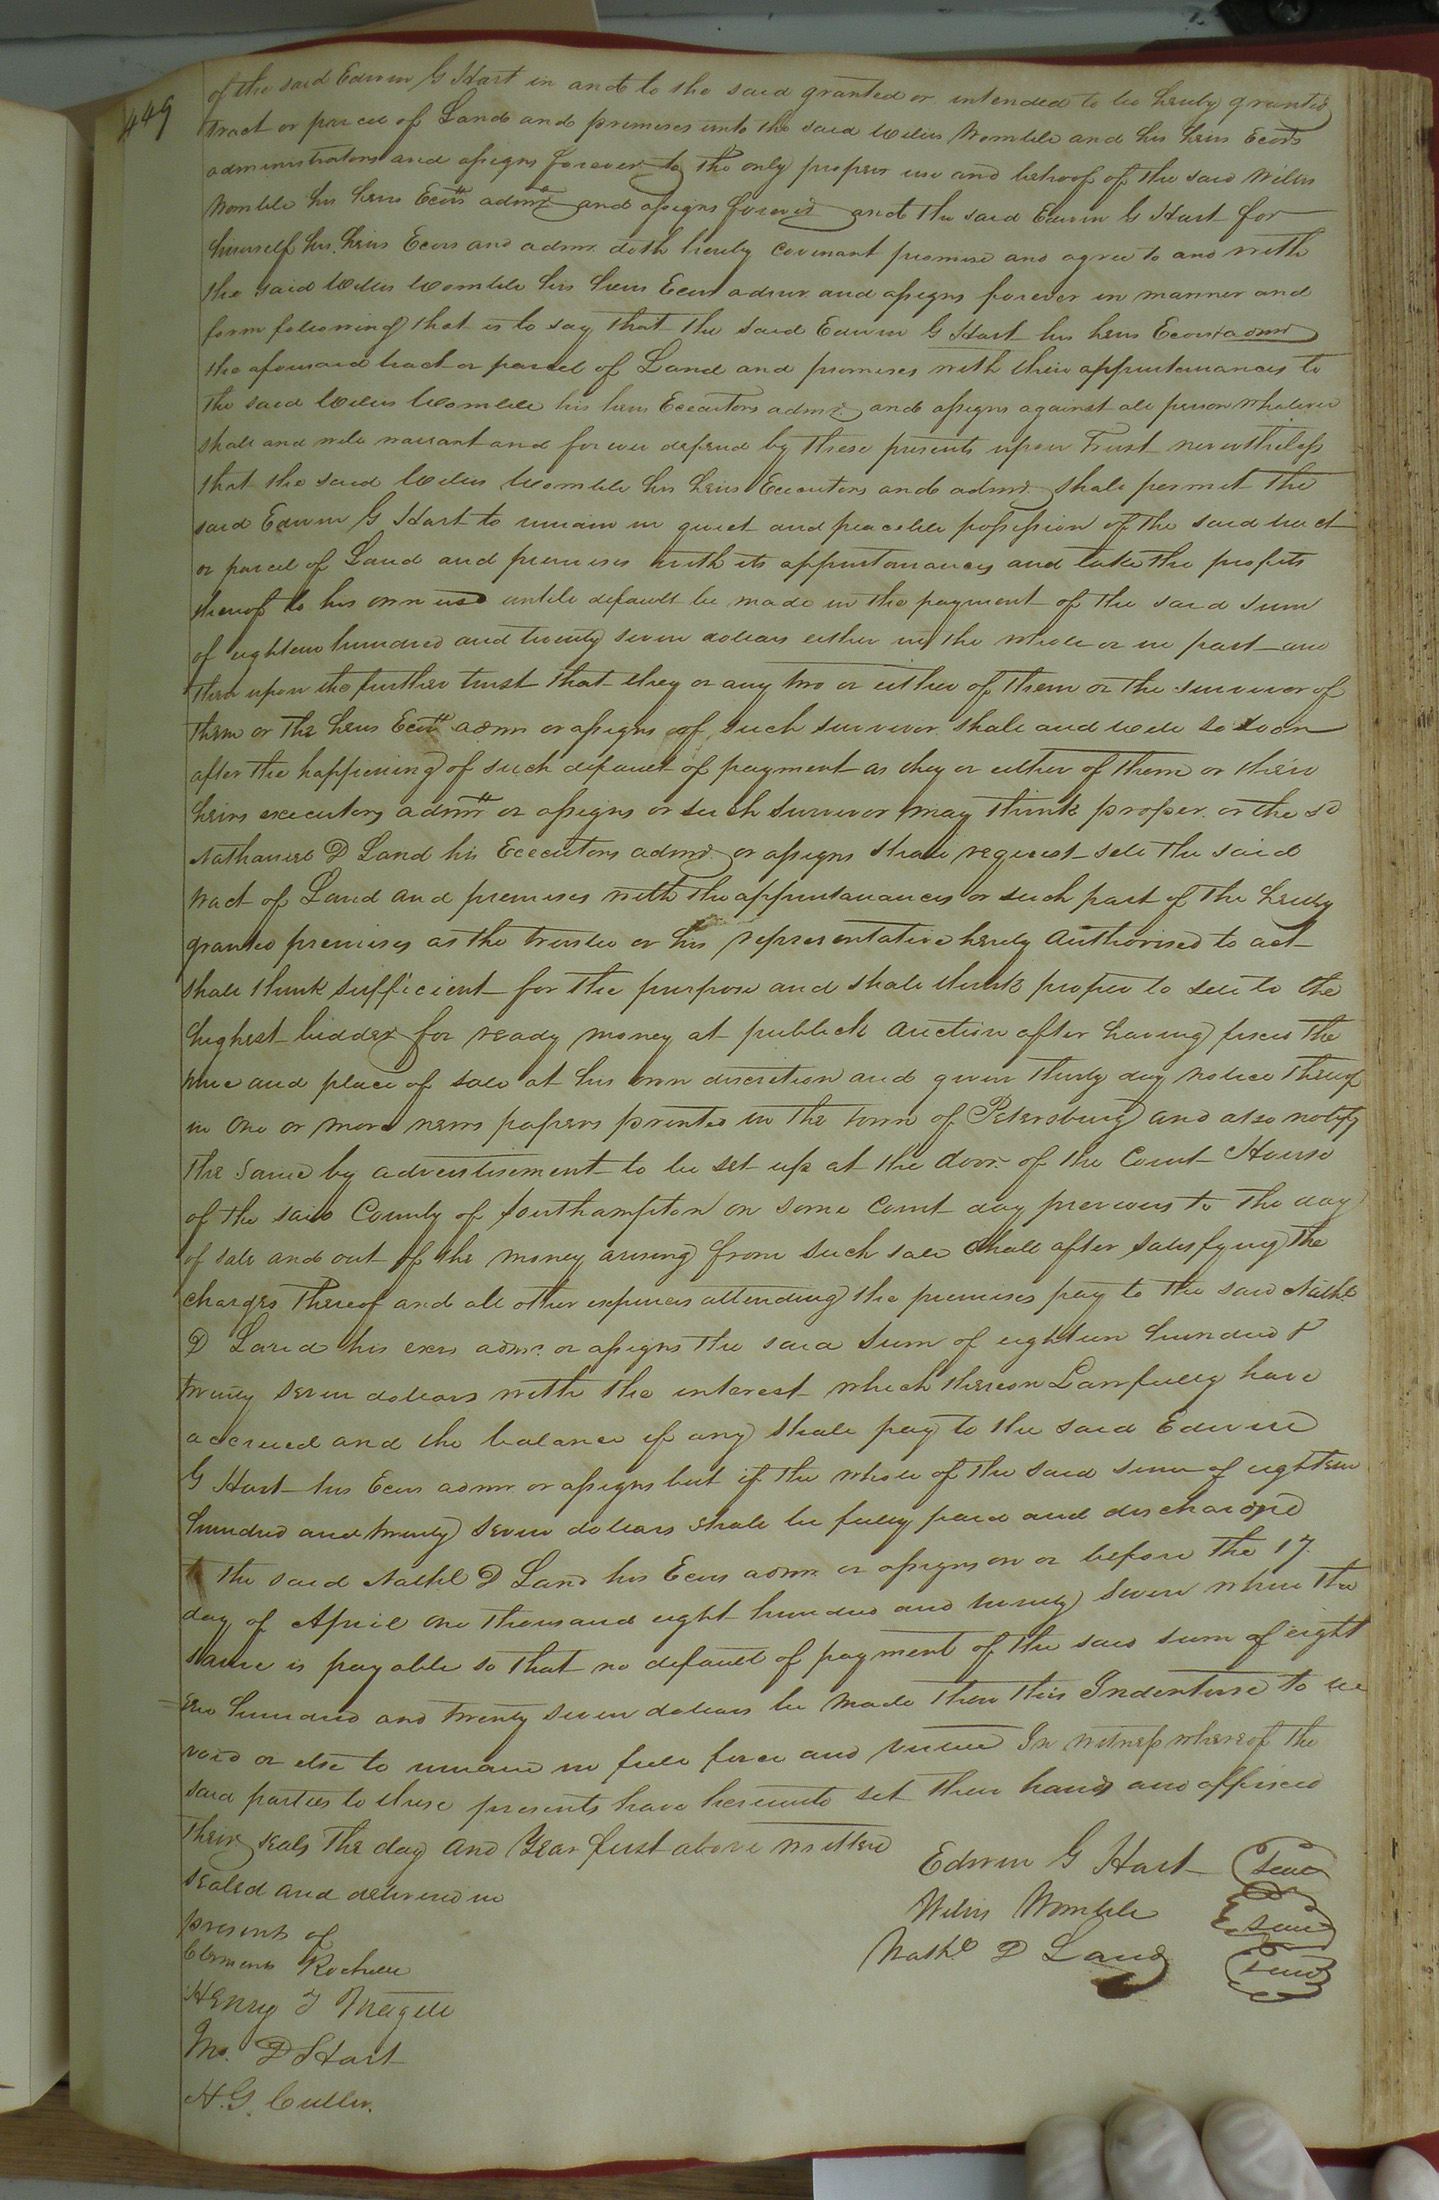 449
of the said Edwin G Hart in and to the said granted or intended to be hereby granted
tract or parcel of Land and premises unto the said Willis Womble and his heirs Ecors
administrators and assigns forever to the only proper use and behoof of the said Willis
Womble his heirs Ecors admrs and assigns forever and the said Edwin G Hart for
himself his heirs Ecors and admrs doth hereby covenant promise and agree to and with
the said Willis Womble his heirs Ecors admrs and assigns forever in manner and
form following that is to say that the said Edwin G Hart his heirs Ecors & admrs
the aforesaid tract or parcel of Land and premises with their appurtenances to
the said Willis Womble his heirs Executors admrs and assigns against all person whatever
shall and will warrant and forever defend by these presents upon Trust nevertheless
that the said Willis Womble his heirs Executors and admrs shall permit the
said Edwin G Hart to remain in quiet and peaceble possession of the said tract
or parcel of Land and premises with its appurtenances and take the profits
thereof to his own use untill default be made in the payment of the said sum
of eighteen hundred and twenty seven dollars either in the whole or in part and
then upon the further trust that they or any two or either of them or the survivor of
them or the heirs Ecors admrs or assigns of such survivor shall and will so soon
after the happening of such default of payment as they or either of them or their
heirs executors admrs or assigns or such survivor may think proper or the sd
Nathaniel D Land his Executors admrs or assigns shall request sell the said
tract of Land and premises with the appurtenances or such part of the hereby
granted premises as the trustee or his representative hereby authorised to act
shall think sufficient for the purpose and shall think proper to sell to the
highest bidder for ready money at publick auction after having fixed the
time and place of sale at his own discretion and given thirty day notice thereof
in one or more news papers printed in the town of Petersburg and also notify
the same by advertisement to be set up at the door of the Court House
of the said County of Southampton on some Court day previous to the day
of sale and out of the money arising from such sale shall after satisfying the
charges thereof and all other expences attending the premises pay to the said Nathl
D Land his exors admrs or assigns the said sum of eighteen hundred &
twenty seven dollars with the interest which thereon Lawfully have
accrued and the balance if any shall pay to the said Edwin
G Hart his Ecors admrs or assigns but if the whole of the said sum of eighteen
hundred and twenty seven dollars shall be fully paid and discharged
to the said Nathl D Land his Ecors admrs or assigns on or before the 17
day of April one thousand eight hundred and twenty seven when the
same is payable so that no default of payment of the said sum of eight
= een hundred and twenty seven dollars be made then this Indenture to be
void or else to remain in full force and virtue In witness whereof the
said parties to these presents have hereunto set their hands and affixed
their seals the day and Year first above written
Sealed and delivered in
presents of
Edwin G Hart Seal
Willis Womble Seal
Nathl D Land Seal
Clements Rochelle
Henry J Magett
D Hart
H. G. Culler.